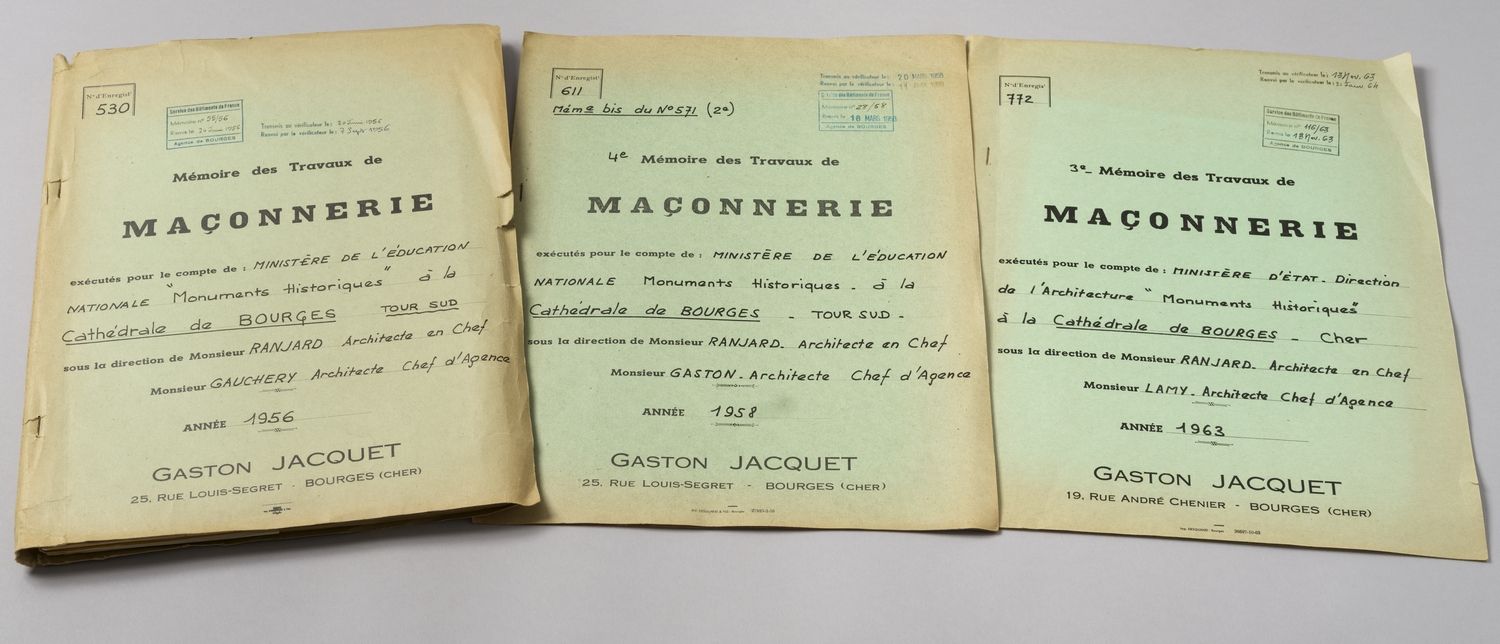 N° d'Enregist
530
Service des Bâtiments de France
Mémoire n° 55/56
Remis le 20 Juin 1956
Agence de BOURGES
Transmis au vérificateur le: 20 Juin 1956
Renvoi par le vérificateur le: 7 Sept 1956
Mémoire des Travaux de
MAÇONNERIE
exécutés pour le compte de : MINISTÈRE DE L'ÉDUCATION
NATIONALE "Monuments Historiques" à la
Cathédrale de BOURGES TOUR SUD
sous la direction de Monsieur RANJARD Architecte en Chef
Monsieur GAUCHERY Architecte Chef d'Agence
ANNÉE 1956
GASTON JACQUET
25, RUE LOUIS-SEGRET - BOURGES (CHER)
N° d'Enregist
611
Mém° bis du N°571 (2e)
Transmis au vérificateur le: 20 MARS 1958
Renvoi par le vérificateur le:
Service des Bâtiments de France
Mémoire n° 28/58
Remis le 18 MARS 1958
Agence de BOURGES
4e Mémoire des Travaux de
MAÇONNERIE
exécutés pour le compte de : MINISTÈRE DE L'ÉDUCATION
NATIONALE Monuments Historiques - à la
Cathédrale de BOURGES - TOUR SUD -
sous la direction de Monsieur RANJARD- Architecte en Chef
Monsieur GASTON - Architecte Chef d'Agence
ANNÉE 1958
GASTON JACQUET
25, RUE LOUIS-SEGRET - BOURGES (CHER)
N° d'Enregist
772
Transmis au vérificateur le: 13 Nov. 63
Renvoi par le vérificateur le:
Service des Bâtiments de France
Mémoire n° 116/63
Remis le 13 Nov. 63
Agence de BOURGES
3e- Mémoire des Travaux de
MAÇONNERIE
exécutés pour le compte de : MINISTÈRE D'ÉTAT - Direction
de l'Architecture "Monuments Historiques"
à la Cathédrale de BOURGES - Cher
sous la direction de Monsieur RANJARD- Architecte en Chef
Monsieur LAMY - Architecte Chef d'Agence
ANNÉE 1963
GASTON JACQUET
19, RUE ANDRÉ CHENIER - BOURGES (CHER)